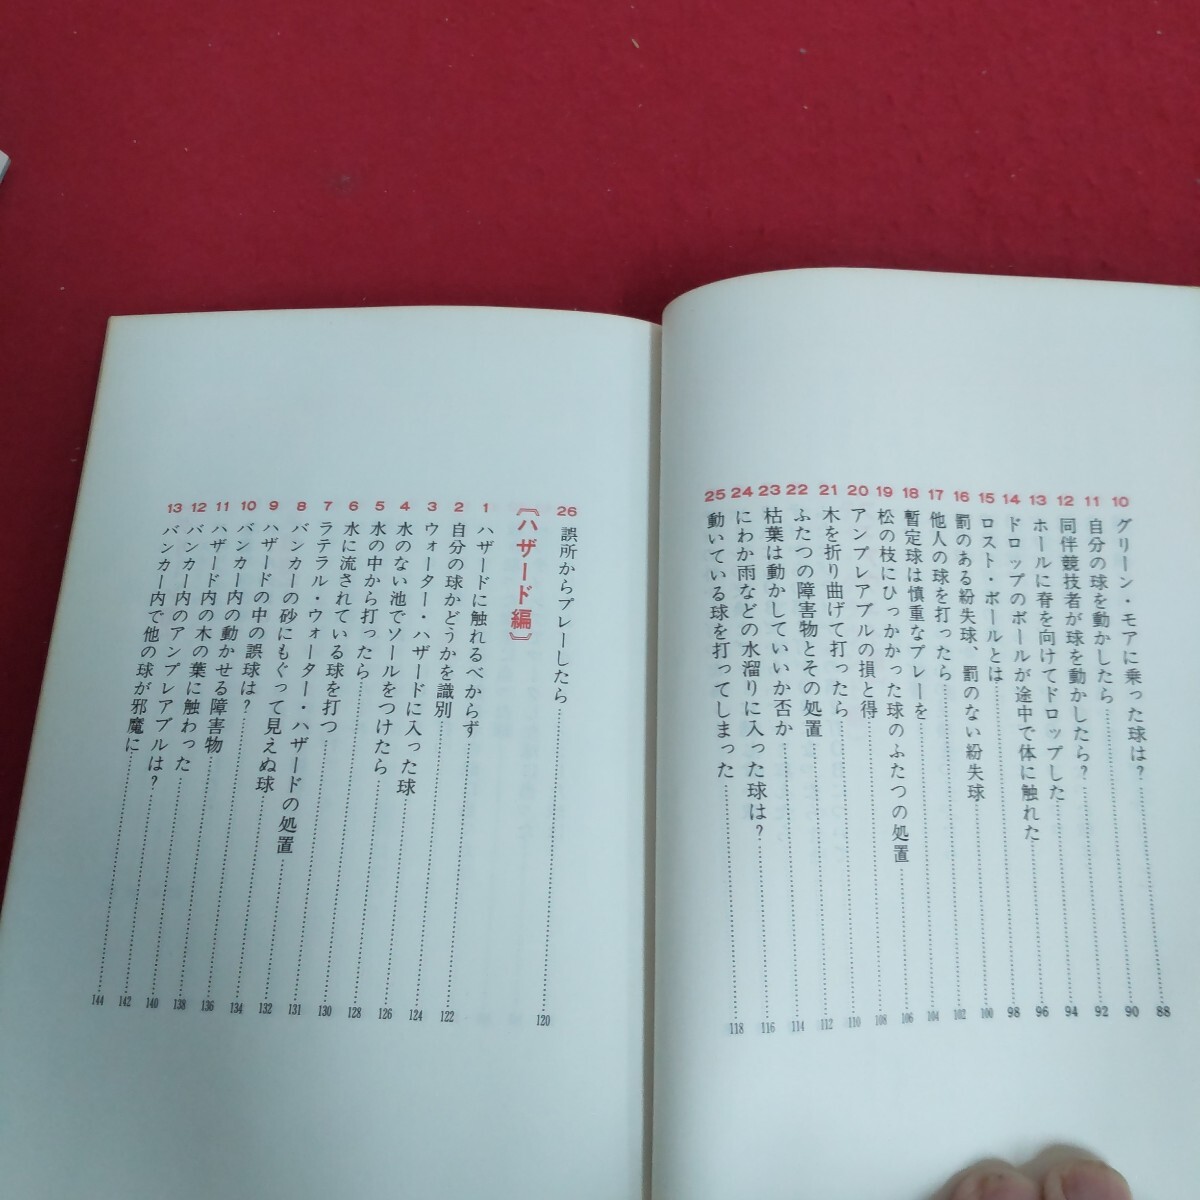 10 グリーン・モアに乗った球は? 88
11 自分の球を動かしたら 90
12 同伴競技者が球を動かしたら? 92
13 ホールに脊を向けてドロップした 94
14 ドロップのボールが途中で体に触れた 96
15 ロスト・ボールとは 98
16 罰のある紛失球、罰のない紛失球 100
17 他人の球を打ったら 102
18 暫定球は慎重なプレーを 104
19 松の枝にひっかかった球のふたつの処置 106
20 アンプレアブルの損と得 108
21 木を折り曲げて打ったら 110
22 ふたつの障害物とその処置 112
23 枯葉は動かしていいか否か 114
24 にわか雨などの水溜りに入った球は? 116
25 動いている球を打ってしまった 118
26 誤所からプレーしたら 120
〘ハザード編〙
1 ハザードに触れるべからず 122
2 自分の球かどうかを識別 124
3 ウォーター・ハザードに入った球 126
4 水のない池でソールをつけたら 128
5 水の中から打ったら 130
6 水に流されている球を打つ 131
7 ラテラル・ウォーター・ハザードの処置 132
8 バンカーの砂にもぐって見えぬ球 134
9 ハザードの中の誤球は? 136
10 バンカー内の動かせる障害物 138
11 ハザード内の木の葉に触わった 140
12 バンカー内のアンプレアブルは? 142
13 バンカー内で他の球が邪魔に 144